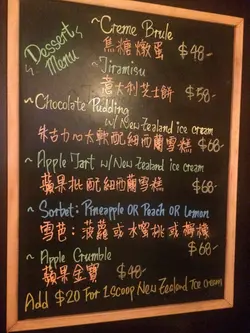 Dessert Menu
~ Creme Brule
焦糖燉蛋 $48-
~Tiramisu
意大利芝士餅 $58-
~Chocolate Pudding
w/ New Zealand ice cream
朱古力心太軟配紐西蘭雪糕 $68-
~Apple Tart w/ New Zealand ice cream
蘋果批配紐西蘭雪糕 $68-
~Sorbet: Pineapple OR Peach OR Lemon
雪芭：菠蘿或水蜜桃或檸檬
$68-
~ Apple Crumble
蘋果金寶 $48-
Add $20 For 1 scoop New Zealand Ice Cream